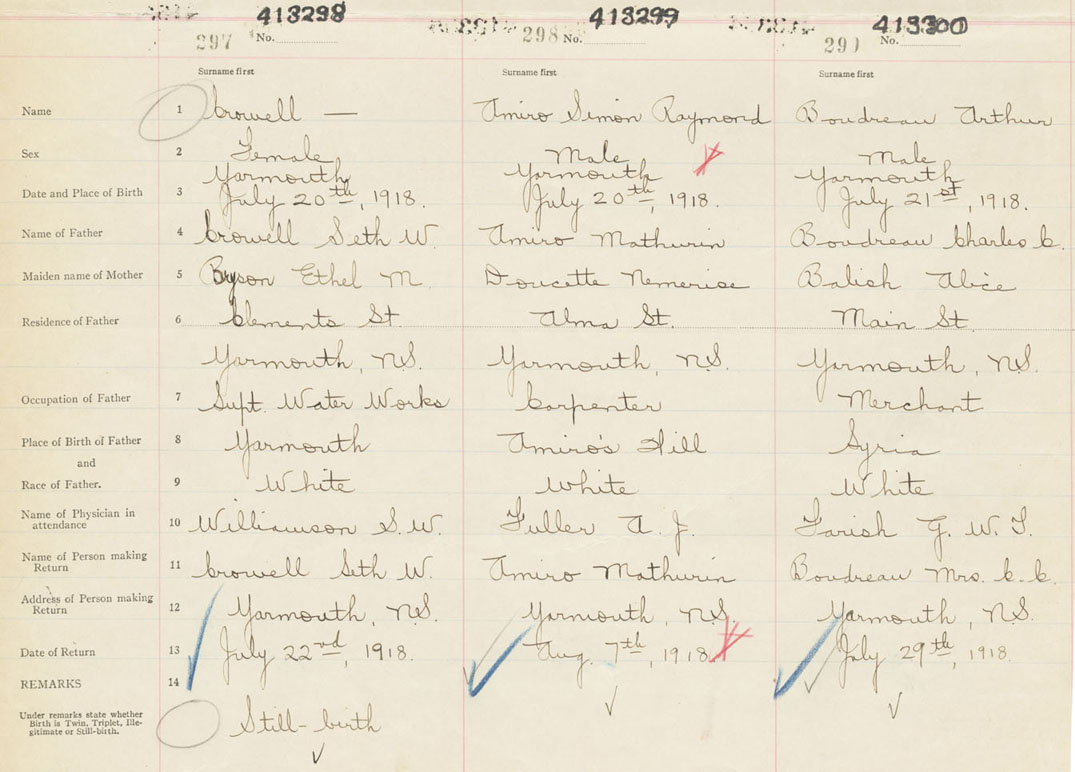 413298 413299 413300
297 No. 298 No. 299 No.
Surname first Surname first Surname first
Name 1 Crowell — Amiro Simon Raymond Boudreau Arthur
Sex 2 Female Male Male
Yarmouth Yarmouth Yarmouth
Date and Place of Birth 3 July 20th, 1918. July 20th, 1918. July 21st, 1918.
Name of Father 4 Crowell Seth W. Amiro Mathurin Boudreau Charles C.
Maiden name of Mother 5 Byson Ethel M. Doucette Nemerise Balish Alice
Residence of Father 6 Clements St. Alma St. Main St.
Yarmouth, N.S. Yarmouth, N.S. Yarmouth, N.S.
Occupation of Father 7 Supt. Water Works Carpenter Merchant
Place of Birth of Father 8 Yarmouth Amiro's Hill Syria
and
Race of Father. 9 White White White
Name of Physician in
attendance 10 Williamson S. W. Fuller A. J. Farish G. W. T.
Name of Person making
Return 11 Crowell Seth W. Amiro Mathurin Boudreau Mrs. C. C.
Address of Person making
Return 12 Yarmouth, N.S. Yarmouth, N.S. Yarmouth, N.S.
Date of Return 13 July 22nd, 1918. Aug. 7th, 1918. July 29th, 1918.
REMARKS 14
Under remarks state whether
Birth is Twin, Triplet, Ille-
gitimate or Still-birth.
Still-birth